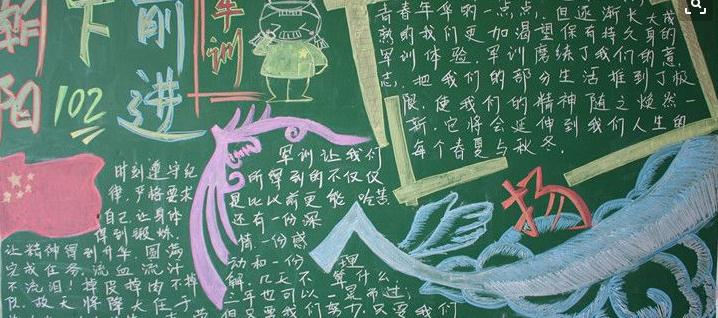 朝阳下前进
102
军训
青春年华的一点点，但逐渐长大成
熟的我们更加渴望保有持久身的
军训体验，军训磨练了我们的意
志，把我们的部分生活推到了极
限，使我们的精神随之焕然一
新，它将会延伸到我们人生的
每个春夏与秋冬。
时刻遵守纪
律，严格要求
自己让身体
得到锻炼，
让精神得到升华，圆满
完成任务，流血流汗
不流泪！掉皮掉肉不掉
队，故天将降大任于
军训让我们
所得到的不仅仅
是比以前更能吃苦
还有一份深
情一份感
动和一份理
解，几天不算什么，
三年也可以一晃而过；
但只要我们努力，只要我们
扬